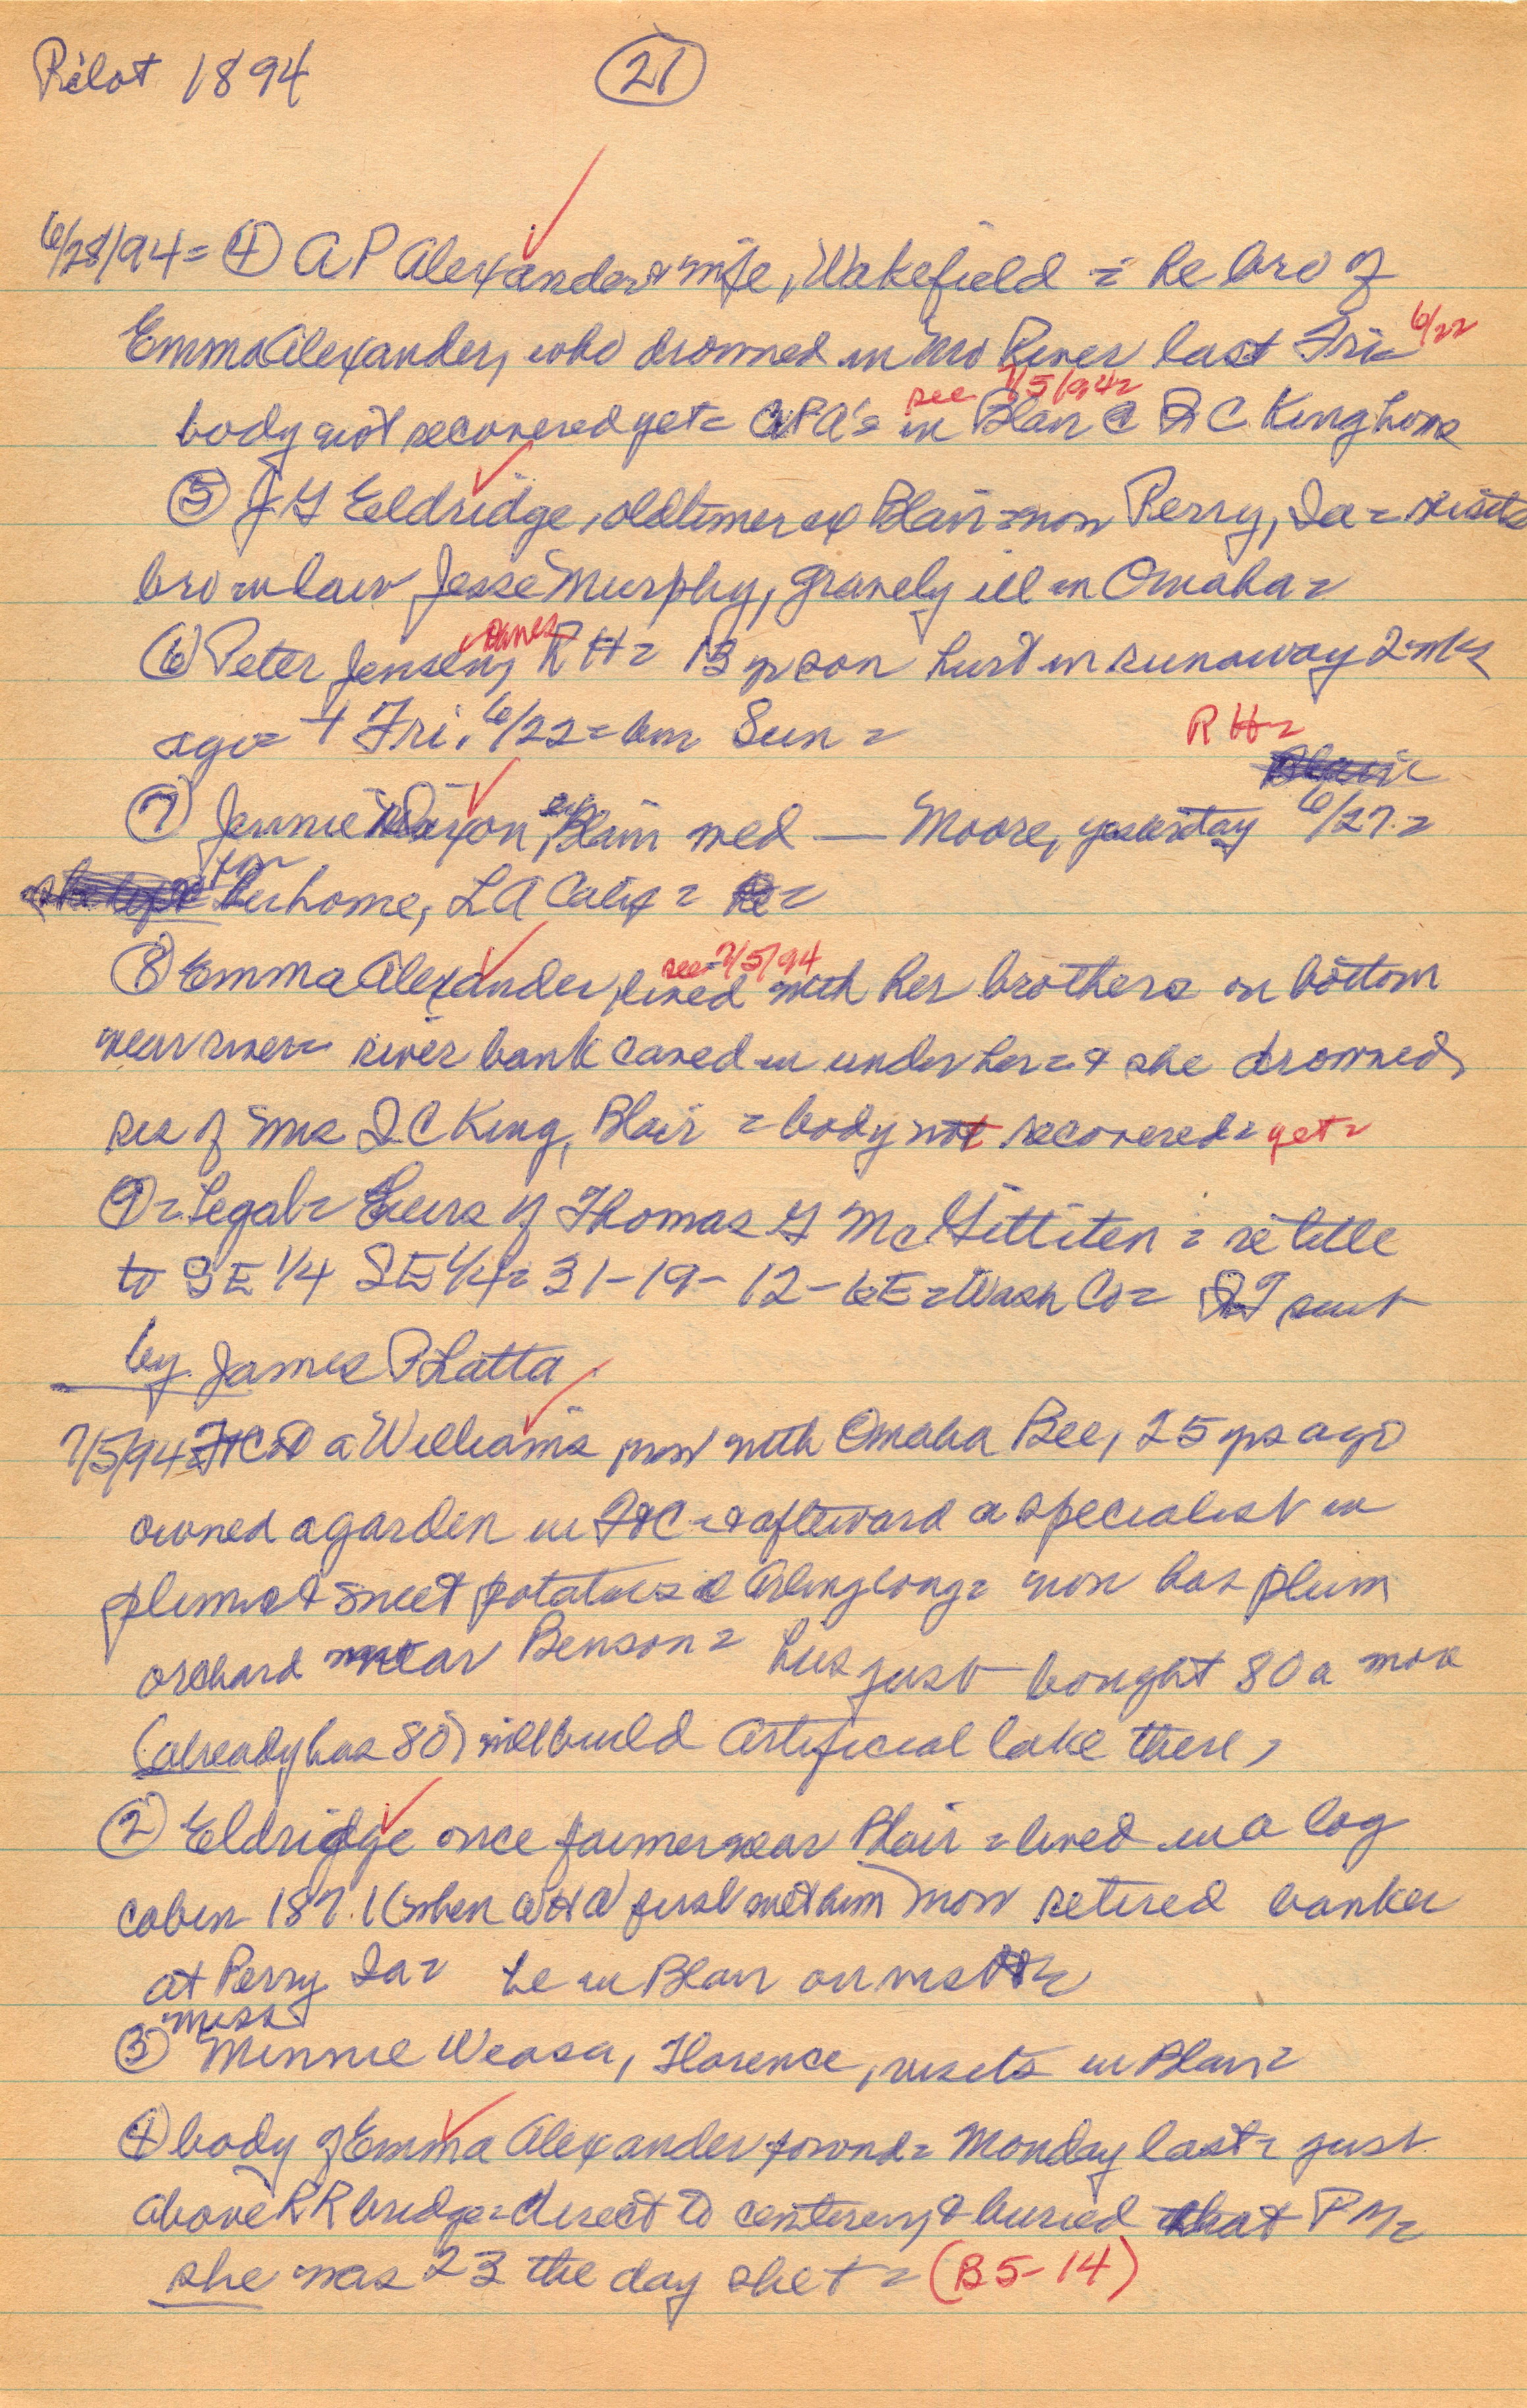 Pilot 1894
21
6/28/94= 4 A P Alexander & wife, Wakefield = he bro of
Emma Alexander, who drowned in Mo River last Fri= 6/22
see 7/5/94=
body not recovered yet= APA's in Blair @ I C King home
5 J G Eldridge, oldtimer of Blair=now Perry, Ia= visits
bro in law Jesse Murphy, gravely ill in Omaha=
Danes
6 Peter Jensen, R H= 13 yr son hurt in runaway 2 wks
ago= + Fri, 6/22= bur Sun =
R H=
7 Jennie Dixon, Blair wed — Moore, yesterday 6/27.=
her home, L A Calif =
see=7/5/94
8 Emma Alexander, lived with her brothers on bottom
near river= river bank caved in under her= & she drowned,
sis of Mrs I C King, Blair = body not recovered= yet=
9= Legal= Heirs of Thomas G = re title
to SE 1/4 SE 1/4= 31-19-12-6E=Wash Co= sent
by James P Latta
7/5/94 a Williams, now with Omaha Bee, 25 yrs ago
owned a garden in Ft C & afterward a specialist in
plums & sweet potatoes @ Arlington= now has plum
orchard near Benson= has just bought 80 a more
(already has 80) will build artificial lake there,
2 Eldridge once farmer near Blair = lived in a log
cabin 1871 (when first met him) now retired banker
at Perry Ia= he in Blair on visit=
Miss
3 Minnie Weasa, Florence, visits in Blair=
4 body of Emma Alexander found= Monday last= just
above R R bridge= direct to cemetery & buried that PM=
she was 23 the day she + = (B 5-14)